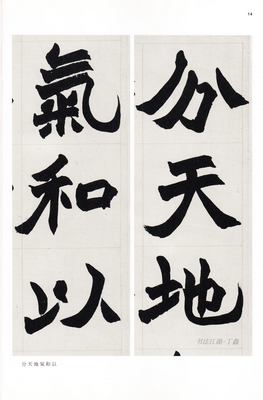 14
分天地
氣和以
书法江湖·丁鑫
分天地氣和以